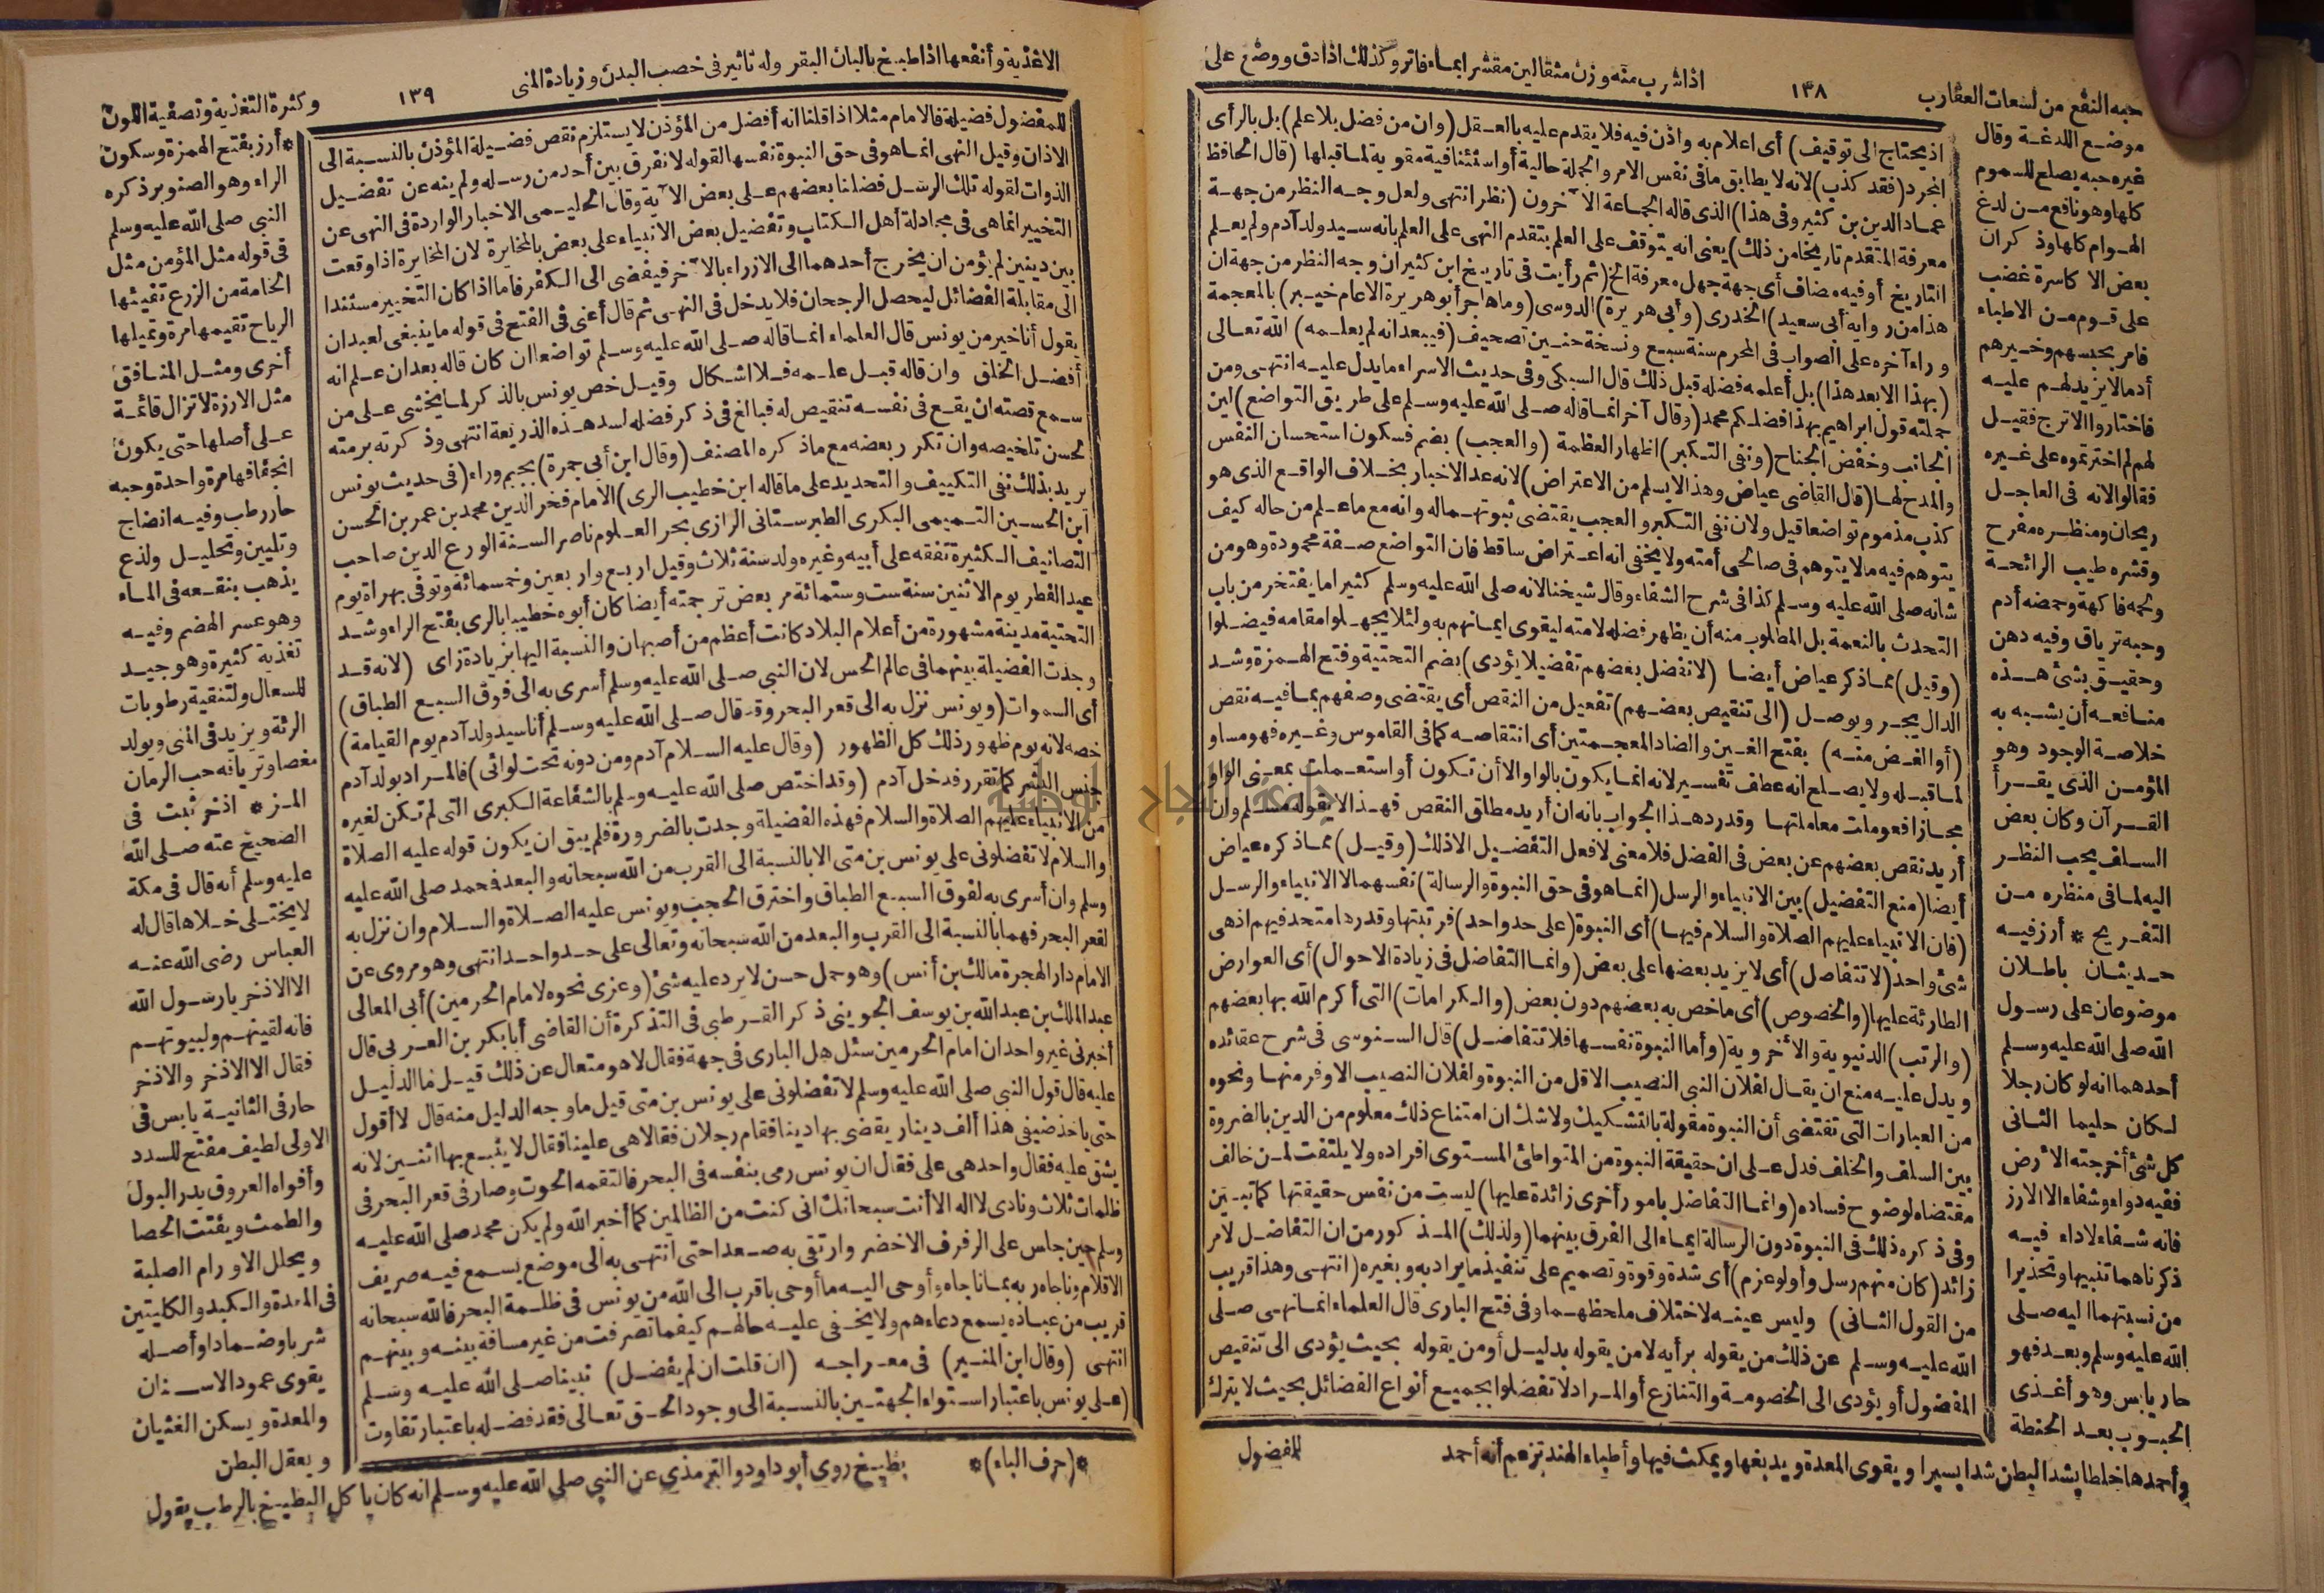 حبه النفع من لسعات العقارب
١٣٨
اذا شرب منه وزن مثقالين مقشر ابماء فاتر وكذلك اذا دق ووضع على
موضع اللدغة وقال
غيره حبه يصلح للسموم
كلها وهو نافع من لدغ
الهوام كلها وذكر ان
بعض الاكاسرة غضب
على قوم من الاطباء
فامر بحبسهم وخيرهم
أدما لا يزيد لهم عليه
فاختاروا الاترج فقيل
لهم لم اخترتموه على غيره
فقالوا لانه في العاجل
ريحان ومنظره مفرح
وقشره طيب الرائحة
ولحمه فاكهة وحمضه أدم
وحبه ترياق وفيه دهن
وحقيق بشئ هذه
منافعه أن يشبه به
خلاصة الوجود وهو
المؤمن الذي يقرأ
القرآن وكان بعض
السلف يحب النظر
اليه لما في منظره من
التفريح * أرز فيه
حديثان باطلان
موضوعان على رسول
الله صلى الله عليه وسلم
أحدهما انه لو كان رجلا
لكان حليما الثانى
كل شئ أخرجته الأرض
ففيه دواء وشفاء الا الارز
فانه شفاء لاداء فيه
ذكرناهما تنبيها وتحذيرا
من نسبتهما اليه صلى
الله عليه وسلم وبعد فهو
حار يابس وهو أغذى
الحبوب بعد الحنطة
اذ يحتاج الى توقيف) أى اعلام به واذن فيه فلا يقدم عليه بالعقل (وان من فضل بلا علم) بل بالرأى
المجرد (فقد كذب) لانه لا يطابق ما في نفس الامر والجملة حالية أو استئنافية مقوية لما قبلها (قال الحافظ
عماد الدين بن كثير وفى هذا) الذى قاله الجماعة الآخرون (نظر انتهى ولعل وجه النظر من جهة
معرفة المتقدم تاريخا من ذلك) يعنى انه يتوقف على العلم بتقدم النهى على العلم بانه سيد ولد آدم ولم يعلم
التاريخ أو فيه مضاف أى جهة جهل معرفة الخ (ثم رأيت في تاريخ ابن كثير ان وجه النظر من جهة ان
هذا من رواية أبي سعيد) الخدرى (وأبي هريرة) الدوسى (وما هاجر أبو هريرة الا عام خيبر) بالمعجمة
وراء آخره على الصواب في المحرم سنة سبع ونسخة حنين تصحيف (فيبعد انه لم يعلمه) الله تعالى
(بهذا الا بعد هذا) بل أعلمه فضله قبل ذلك قال السبكى وفي حديث الاسراء ما يدل عليه انتهى ومن
جملته قول ابراهيم بهذا فضلكم محمد (وقال آخر انما قاله صلى الله عليه وسلم على طريق التواضع) لين
الجانب وخفض الجناح (ونفى التكبر) اظهار العظمة (والعجب) بضم فسكون استحسان النفس
والمدح لها (قال القاضى عياض وهذا لا يسلم من الاعتراض) لانه عد الاخبار بخلاف الواقع الذى هو
كذب مذموم تواضعا قيل ولان نفى التكبر والعجب يقتضى ثبوتهما له وانه مع ما علم من حاله كيف
يتوهم فيه ما لا يتوهم في صالحى أمته ولا يخفى انه اعتراض ساقط فان التواضع صفة محمودة وهو من
شانه صلى الله عليه وسلم كذا في شرح الشفاء وقال شيخنا لانه صلى الله عليه وسلم كثيرا ما يفتخر من باب
التحدث بالنعمة بل المطلوب منه أن يظهر فضله لامته ليقوى ايمانهم به ولئلا يجهلوا مقامه فيضلوا
(وقيل) مما ذكر عياض أيضا (لا نفضل بعضهم تفضيلا يؤدى) بضم التحتية وفتح الهمزة وشد
الدال يجر ويوصل (الى تنقيص بعضهم) تفعيل من النقص أى يقتضى وصفهم بما فيه نقص
(أو الغض منه) بفتح الغين والضاد المعجمتين أى انتقاصه كما في القاموس وغيره فهو مساو
لما قبله ولا يصلح انه عطف تفسير لانه انما يكون بالواو الا أن تكون أو استعملت بمعنى الواو
مجازا فعوملت معاملتها وقد رد هذا الجواب بانه ان أريد مطلق النقص فهذا لا يقوله مسلم وان
أريد نقص بعضهم عن بعض في الفضل فلا معنى لافعل التفضيل الا ذلك (وقيل) مما ذكره عياض
أيضا (منع التفضيل) بين الانبياء والرسل (انما هو في حق النبوة والرسالة) نفسهما لا الانبياء والرسل
(فان الانبياء عليهم الصلاة والسلام فيها) أى النبوة (على حد واحد) فرتبتها وقدرها متحد فيهم اذ هى
شئ واحد (لا تتفاضل) أى لا يزيد بعضها على بعض (وانما التفاضل في زيادة الاحوال) أى العوارض
الطارئة عليها (والخصوص) أى ما خص به بعضهم دون بعض (والكرامات) التى أكرم الله بها بعضهم
(والرتب) الدنيوية والأخروية (وأما النبوة نفسها فلا تتفاضل) قال السنوسى في شرح عقائده
ويدل عليه منع ان يقال لفلان النبى النصيب الاقل من النبوة ولفلان النصيب الاوفر منها ونحوه
من العبارات التى تقتضى أن النبوة مقولة بالتشكيك ولا شك ان امتناع ذلك معلوم من الدين بالضرورة
بين السلف والخلف فدل على ان حقيقة النبوة من المتواطئ المستوى افراده ولا يلتفت لمن خالف
مقتضاه لوضوح فساده (وانما التفاضل بامور أخرى زائدة عليها) ليست من نفس حقيقتها كما تبين
وفى ذكره ذلك في النبوة دون الرسالة ايماء الى الفرق بينهما (ولذلك) المذكور من ان التفاضل لامر
زائد (كان منهم رسل وأولو عزم) أى شدة وقوة وتصميم على تنفيذ ما يراد به وبغيره (انتهى وهذا قريب
من القول الثانى) وليس عينه لاختلاف ملحظهما وفى فتح البارى قال العلماء انما نهى صلى
الله عليه وسلم عن ذلك من يقوله برأيه لا من يقوله بدليل أو من يقوله بحيث يؤدى الى تنقيص
المفضول أو يؤدى الى الخصومة والتنازع أو المراد لا تفضلوا بجميع أنواع الفضائل بحيث لا يترك
وأحمدها خلطا يشد البطن شدا يسيرا ويقوى المعدة ويدبغها ويمكث فيها وأطباء الهند تزعم أنه أحمد
للمفضول
الاغذية وأنفعها اذا طبخ بالبان البقر وله تاثير في خصب البدن وزيادة المنى
١٣٩
وكثرة التغذية وتصفية اللون
للمفضول فضيلة فالامام مثلا اذا قلنا انه أفضل من المؤذن لا يستلزم نقص فضيلة المؤذن بالنسبة الى
الاذان وقيل النهى انما هو في حق النبوة نفسها لقوله لا نفرق بين أحد من رسله ولم ينه عن تفضيل
الذوات لقوله تلك الرسل فضلنا بعضهم على بعض الآية وقال الحليمى الاخبار الواردة في النهى عن
التخيير انما هى في مجادلة أهل الكتاب وتفضيل بعض الانبياء على بعض بالمخايرة لان المخايرة اذا وقعت
بين دينين لم يؤمن ان يخرج أحدهما الى الازراء بالآخر فيفضى الى الكفر فاما اذا كان التخيير مستندا
الى مقابلة الفضائل ليحصل الرجحان فلا يدخل في النهى ثم قال أعنى في الفتح في قوله ما ينبغى لعبد ان
يقول أنا خير من يونس قال العلماء انما قاله صلى الله عليه وسلم تواضعا ان كان قاله بعد ان علم انه
أفضل الخلق وان قاله قبل علمه فلا اشكال وقيل خص يونس بالذكر لما يخشى على من
سمع قصته ان يقع في نفسه تنقيص له فبالغ في ذكر فضله لسد هذه الذريعة انتهى وذكرته برمته
لحسن تلخيصه وان تكرر بعضه مع ما ذكره المصنف (وقال ابن أبي جمرة) بجيم وراء (في حديث يونس
يريد بذلك نفى التكييف والتحديد على ما قاله ابن خطيب الرى) الامام فخر الدين محمد بن عمر بن الحسن
ابن الحسين التميمى البكرى الطبرستانى الرازى بحر العلوم ناصر السنة الورع الدين صاحب
التصانيف الكثيرة تفقه على أبيه وغيره ولد سنة ثلاث وقيل اربع واربعين وخمسمائة وتوفى بهراة يوم
عيد الفطر يوم الاثنين سنة ست وستمائة مر بعض ترجمته أيضا كان أبوه خطيبا بالرى بفتح الراء وشد
التحتية مدينة مشهورة من أعلام البلاد كانت أعظم من أصبهان والنسبة اليها بزيادة زاى (لانه قد
وجدت الفضيلة بينهما في عالم الحس لان النبي صلى الله عليه وسلم أسرى به الى فوق السبع الطباق)
أى السموات (ويونس نزل به الى قعر البحر وقد قال صلى الله عليه وسلم أنا سيد ولد آدم يوم القيامة)
خصه لانه يوم ظهور ذلك كل الظهور (وقال عليه السلام آدم ومن دونه تحت لوائى) فالمراد بولد آدم
جنس البشر كما تقرر فدخل آدم (وقد اختص صلى الله عليه وسلم بالشفاعة الكبرى التى لم تكن لغيره
من الانبياء عليهم الصلاة والسلام فهذه الفضيلة وجدت بالضرورة فلم يبق ان يكون قوله عليه الصلاة
والسلام لا تفضلونى على يونس بن متى الا بالنسبة الى القرب من الله سبحانه والبعد فمحمد صلى الله عليه
وسلم وان أسرى به لفوق السبع الطباق واخترق الحجب ويونس عليه الصلاة والسلام وان نزل به
لقعر البحر فهما بالنسبة الى القرب والبعد من الله سبحانه وتعالى على حد واحد انتهى وهو مروى عن
الامام دار الهجرة مالك بن أنس) وهو حمل حسن لا يرد عليه شئ (وعزى نحوه لامام الحرمين) أبي المعالى
عبد الملك بن عبد الله بن يوسف الجوينى ذكر القرطبي في التذكرة أن القاضى أبا بكر بن العربى قال
أخبرنى غير واحد ان امام الحرمين سئل هل البارى في جهة فقال لا هو متعال عن ذلك قيل فما الدليل
عليه قال قول النبي صلى الله عليه وسلم لا تفضلونى على يونس بن متى قيل ما وجه الدليل منه قال لا أقول
حتى ياخذ ضيفى هذا ألف دينار يقضى بها دينا فقام رجلان فقالا هى علينا فقال لا يتبع بها اثنين لانه
يشق عليه فقال واحد هى على فقال ان يونس رمى بنفسه في البحر فالتقمه الحوت وصار في قعر البحر في
ظلمات ثلاث ونادى لا اله الا أنت سبحانك انى كنت من الظالمين كما أخبر الله ولم يكن محمد صلى الله عليه
وسلم حين جلس على الرفرف الاخضر وارتقى به صعدا حتى انتهى به الى موضع يسمع فيه صريف
الاقلام وناجاه ربه بما ناجاه وأوحى اليه ما أوحى باقرب الى الله من يونس في ظلمة البحر فالله سبحانه
قريب من عباده يسمع دعاءهم ولا يخفى عليه حالهم كيفما تصرفت من غير مسافة بينه وبينهم
انتهى (وقال ابن المنير) في معراجه (ان قلت ان لم يفضل) نبينا صلى الله عليه وسلم
(على يونس باعتبار استواء الجهتين بالنسبة الى وجود الحق تعالى فقد فضله باعتبار تفاوت
* أرز بفتح الهمزة وسكون
الراء وهو الصنوبر ذكره
النبي صلى الله عليه وسلم
في قوله مثل المؤمن مثل
الخامة من الزرع تفيئها
الرياح تقيمها مرة وتميلها
أخرى ومثل المنافق
مثل الارزة لا تزال قائمة
على أصلها حتى يكون
انجعافها مرة واحدة وحبه
حار رطب وفيه انضاج
وتليين وتحليل ولذع
يذهب بنقعه في الماء
وهو عسر الهضم وفيه
تغذية كثيرة وهو جيد
للسعال ولتنقية رطوبات
الرئة ويزيد في المنى ويولد
مغصا وترياقه حب الرمان
المز * اذخر ثبت في
الصحيح عنه صلى الله
عليه وسلم أنه قال في مكة
لا يختلى خلاها قال له
العباس رضى الله عنه
الا الاذخر يا رسول الله
فانه لقينهم ولبيوتهم
فقال الا الاذخر والاذخر
حار في الثانية يابس في
الاولى لطيف مفتح للسدد
وأفواه العروق يدر البول
والطمث ويفتت الحصا
ويحلل الاورام الصلبة
في المعدة والكبد والكليتين
شربا وضمادا وأصله
يقوى عمود الاسنان
والمعدة ويسكن الغثيان
ويعقل البطن
*(حرف الباء)*
بطيخ روى أبو داود والترمذي عن النبي صلى الله عليه وسلم انه كان ياكل البطيخ بالرطب يقول